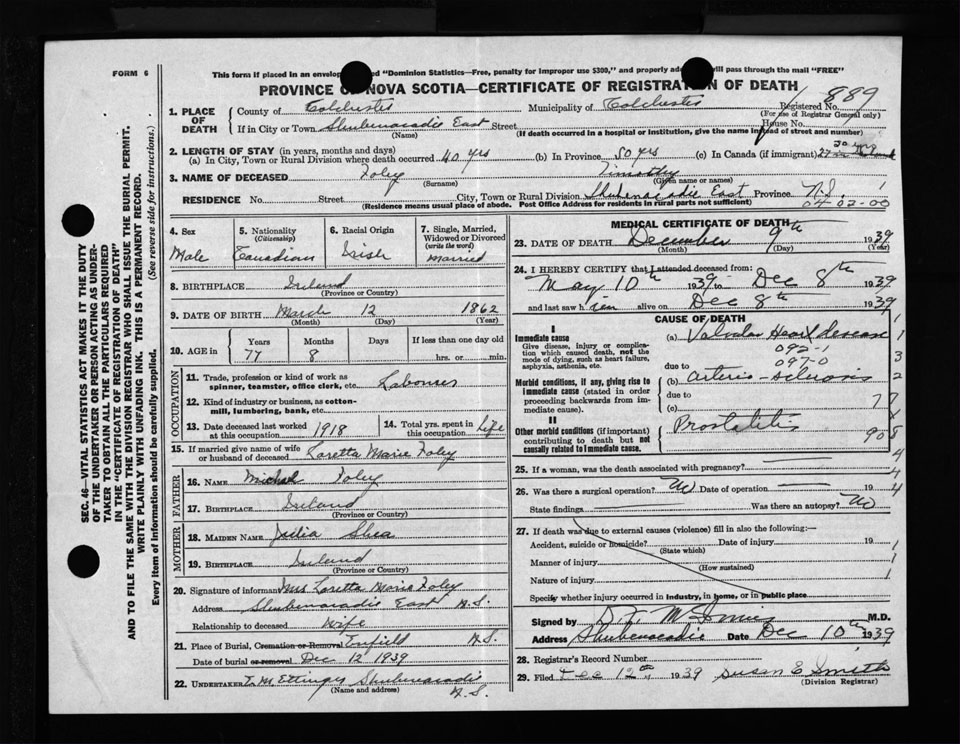 FORM 6
This form if placed in an envelop d "Dominion Statistics—Free, penalty for improper use $300," and properly ad will pass through the mail "FREE"
PROVINCE O NOVA SCOTIA—CERTIFICATE OF REGISTRAT N OF DEATH
1. PLACE OF DEATH County of Colchester Municipality of Colchester Registered No. 889
(For use of Registrar General only)
If in City or Town Shubenacadie East Street House No.
(Name) (If death occurred in a hospital or institution, give the name instead of street and number)
2. LENGTH OF STAY (in years, months and days)
(a) In City, Town or Rural Division where death occurred 40 yrs (b) In Province 50 yrs (c) In Canada (if immigrant)
3. NAME OF DECEASED Foley Timothy
(Surname) (Given name or names)
RESIDENCE No. Street City, Town or Rural Division Shubenacadie East Province N.S.
(Residence means usual place of abode. Post Office Address for residents in rural parts not sufficient) 04-02-00
4. Sex Male
5. Nationality (Citizenship) Canadian
6. Racial Origin Irish
7. Single, Married, Widowed or Divorced (write the word) Married
8. BIRTHPLACE Ireland
(Province or Country)
9. DATE OF BIRTH March 12 1862
(Month) (Day) (Year)
10. AGE in Years Months Days If less than one day old
77 8 hrs. or min.
OCCUPATION
11. Trade, profession or kind of work as spinner, teamster, office clerk, etc. Labourer
12. Kind of industry or business, as cotton-mill, lumbering, bank, etc.
13. Date deceased last worked at this occupation 1918
14. Total yrs. spent in this occupation life
15. If married give name of wife or husband of deceased Loretta Marie Foley
FATHER
16. NAME Michael Foley
17. BIRTHPLACE Ireland
(Province or Country)
MOTHER
18. MAIDEN NAME Julia Shea
19. BIRTHPLACE Ireland
(Province or Country)
20. Signature of informant Mrs Loretta Marie Foley
Address Shubenacadie East N.S.
Relationship to deceased Wife
21. Place of Burial, Cremation or Removal Enfield N.S.
Date of burial or removal Dec 12 1939
22. UNDERTAKER T. M Ettinger Shubenacadie
(Name and address) N.S.
MEDICAL CERTIFICATE OF DEATH
23. DATE OF DEATH December 9th 1939
(Month) (Day) (Year)
24. I HEREBY CERTIFY that I attended deceased from:
May 10th 1939 to Dec 8th 1939
and last saw h im alive on Dec 8th 1939
CAUSE OF DEATH
I
Immediate cause (a) Valvular Heart disease
Give disease, injury or complication which caused death, not the mode of dying, such as heart failure, asphyxia, asthenia, etc.
092-1
097-0
due to
Morbid conditions, if any, giving rise to immediate cause (stated in order proceeding backwards from immediate cause).
(b) Arterio-sclerosis
due to
(c)
77
II
Other morbid conditions (if important) contributing to death but not causally related to immediate cause.
Prostatitis
90
25. If a woman, was the death associated with pregnancy?
26. Was there a surgical operation? No Date of operation
State findings Was there an autopsy? No
27. If death was due to external causes (violence) fill in also the following:—
Accident, suicide or homicide? Date of injury 19
(State which)
Manner of injury
(How sustained)
Nature of injury
Specify whether injury occurred in industry, in home, or in public place
Signed by M.D.
Address Shubenacadie Date Dec 10th 1939
28. Registrar's Record Number
29. Filed Dec 12th 1939 Susan E Smith
(Division Registrar)
SEC. 46—VITAL STATISTICS ACT MAKES IT THE DUTY
OF THE UNDERTAKER OR PERSON ACTING AS UNDER-
TAKER TO OBTAIN ALL THE PARTICULARS REQUIRED
IN THE "CERTIFICATE OF REGISTRATION OF DEATH"
AND TO FILE THE SAME WITH THE DIVISION REGISTRAR WHO SHALL ISSUE THE BURIAL PERMIT.
WRITE PLAINLY WITH UNFADING INK. THIS IS A PERMANENT RECORD.
Every item of information should be carefully supplied. (See reverse side for instructions.)